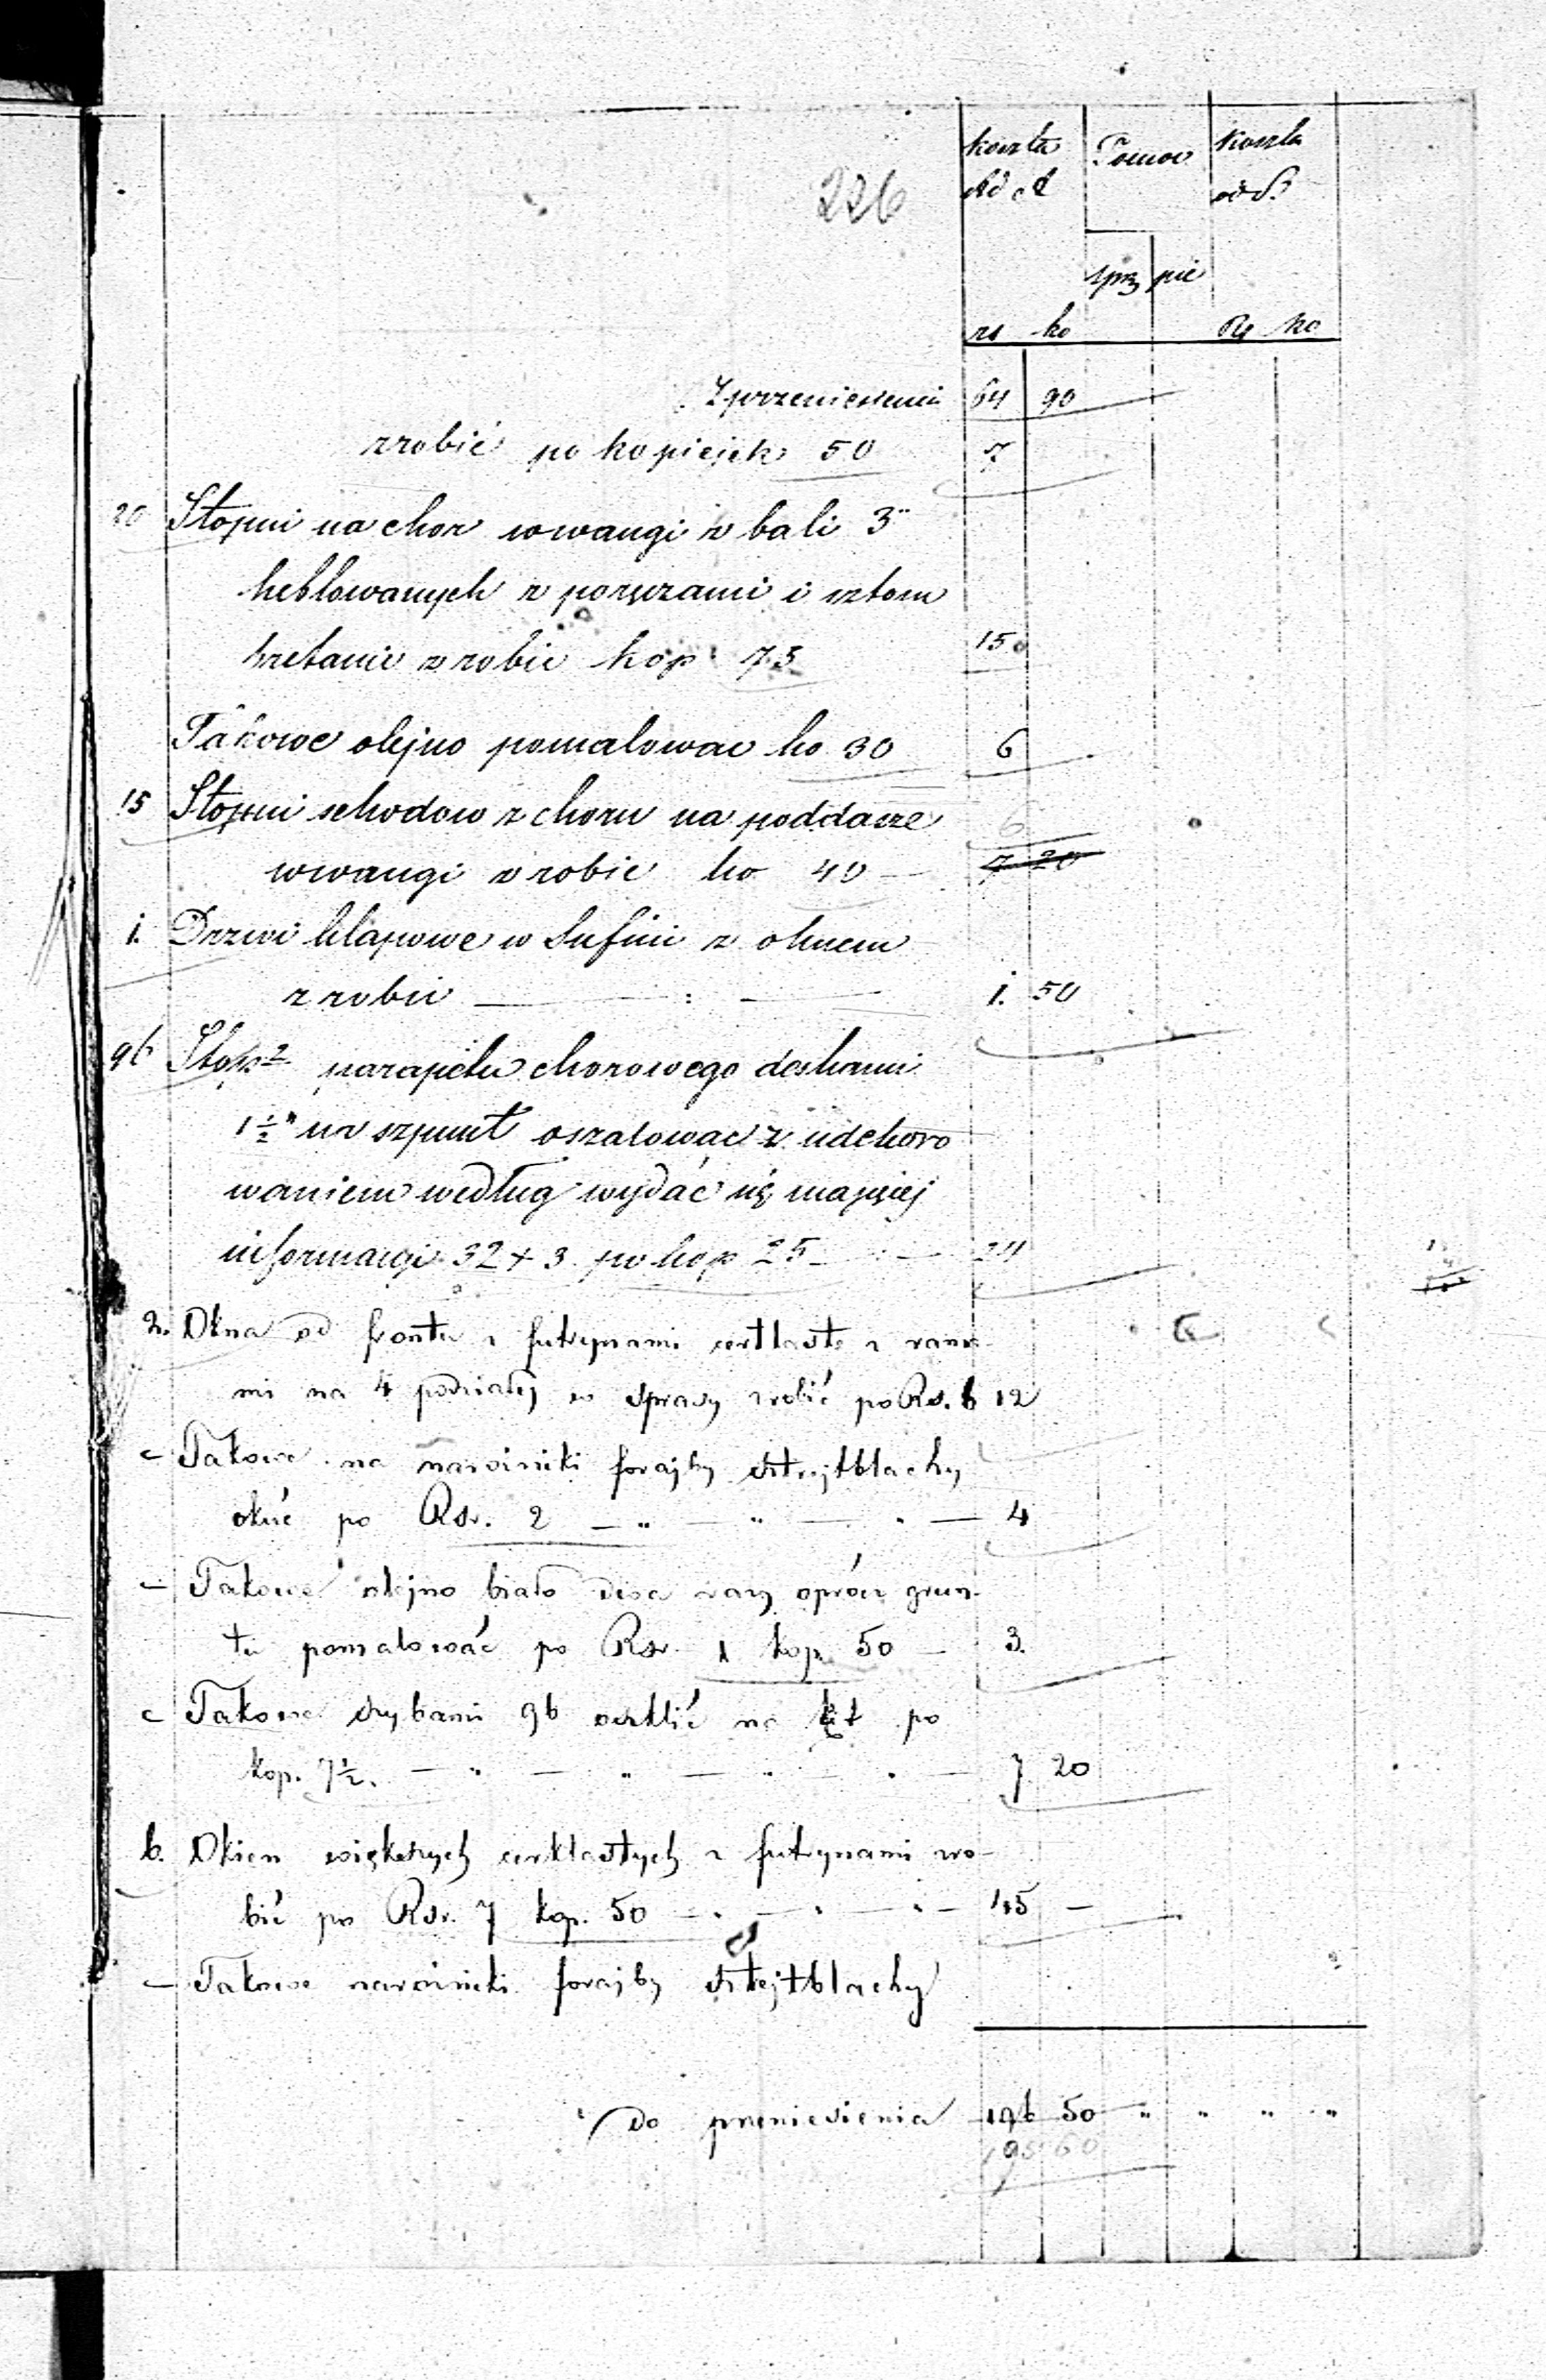 226
koszta Pomoc koszta
od
sprz pie
rs ko Rs ko
Z przeniesienia 64 90
zrobić po kopiejek 50 7
20 Stopni na chor w wangi z bali 3"
heblowanych z poręczami i sztom
bretami zrobic kop 75 15
Takowe olejno pomalowac ko 30 6
15 Stopni schodow z choru na poddasze 6
w wangi zrobic ko 40 — 7 20
1. Drzwi klapowe w Sufici z oknem
zrobic — : — 1. 50
96 Stop² parapetu chorowego deskami
1½" na szpunt oszalować z udekoro
waniem według wydać się mającej
informacyi 32 + 3 po kop 25 — 24
2. Okna od frontu z futrynami cerklaste z rama-
mi na 4 podziały w sprosy zrobić po Rs. 6 12
— Takowe na narożniki forajby sztejtblachy
okuć po Rsr. 2 — „ — „ — . — 4
— Takowe olejno biało dwa razy oprócz grun-
tu pomalować po Rsr 1 kop. 50 — 3.
— Takowe szybami 96 oszklić na kit po
kop. 7½. — „ — „ — „ — . — 7 20
6. Okien większych cerklastych z futrynami zro-
bić po Rsr. 7 kop. 50 — . — . — . — 45 —
— Takowe narożniki forajby sztejtblachy
Do przeniesienia 196 50 „ „ „ „
195 60